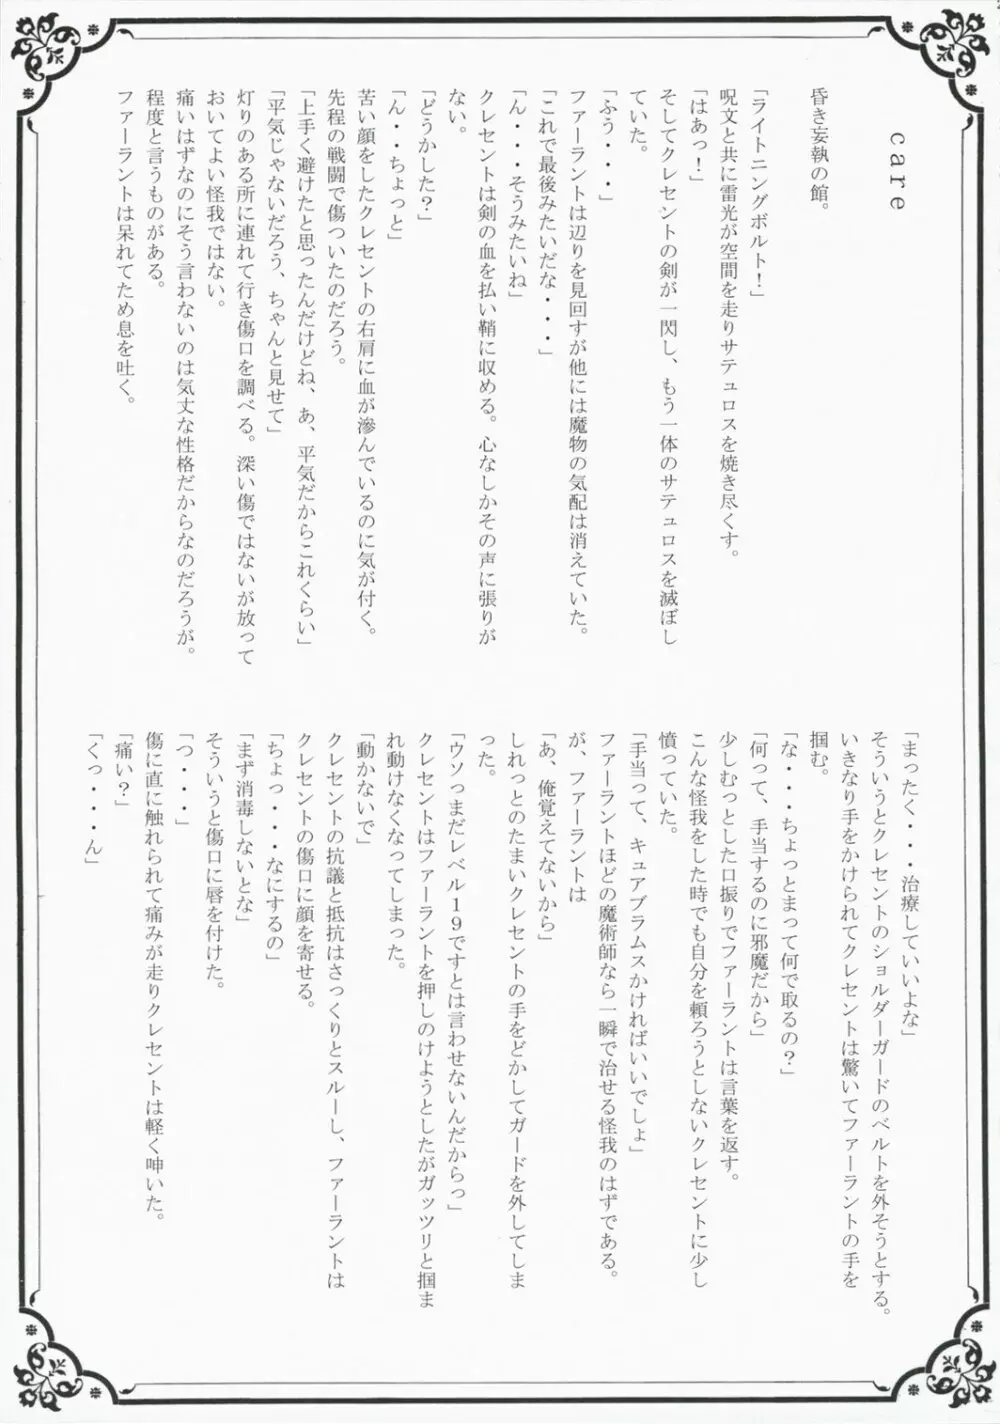 care
昏き妄執の館。
「ライトニングボルト！」
呪文と共に雷光が空間を走りサテュロスを焼き尽くす。
「はあっ！」
そしてクレセントの剣が一閃し、もう一体のサテュロスを滅ぼし
ていた。
「ふう・・・」
ファーラントは辺りを見回すが他には魔物の気配は消えていた。
「これで最後みたいだな・・・」
「ん・・・そうみたいね」
クレセントは剣の血を払い鞘に収める。心なしかその声に張りが
ない。
「どうかした？」
「ん・・ちょっと」
苦い顔をしたクレセントの右肩に血が滲んでいるのに気が付く。
先程の戦闘で傷ついたのだろう。
「上手く避けたと思ったんだけどね、あ、平気だからこれくらい」
「平気じゃないだろう、ちゃんと見せて」
灯りのある所に連れて行き傷口を調べる。深い傷ではないが放って
おいてよい怪我ではない。
痛いはずなのにそう言わないのは気丈な性格だからなのだろうが。
程度と言うものがある。
ファーラントは呆れてため息を吐く。
「まったく・・・治療していいよな」
そういうとクレセントのショルダーガードのベルトを外そうとする。
いきなり手をかけられてクレセントは驚いてファーラントの手を
掴む。
「な・・・ちょっとまって何で取るの？」
「何って、手当するのに邪魔だから」
少しむっとした口振りでファーラントは言葉を返す。
こんな怪我をした時でも自分を頼ろうとしないクレセントに少し
憤っていた。
「手当って、キュアブラムスかければいいでしょ」
ファーラントほどの魔術師なら一瞬で治せる怪我のはずである。
が、ファーラントは
「あ、俺覚えてないから」
しれっとのたまいクレセントの手をどかしてガードを外してしま
った。
「ウソっまだレベル１９ですとは言わせないんだからっ」
クレセントはファーラントを押しのけようとしたがガッツリと掴ま
れ動けなくなってしまった。
「動かないで」
クレセントの抗議と抵抗はさっくりとスルーし、ファーラントは
クレセントの傷口に顔を寄せる。
「ちょっ・・・なにするの」
「まず消毒しないとな」
そういうと傷口に唇を付けた。
「つ・・・」
傷に直に触れられて痛みが走りクレセントは軽く呻いた。
「痛い？」
「くっ・・・ん」